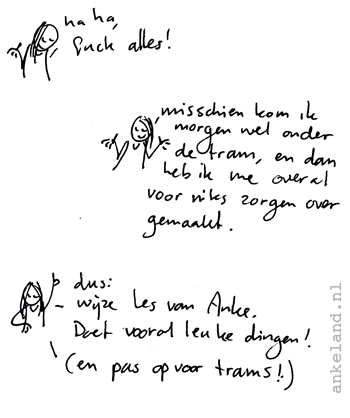 ha ha,
fuck alles!
misschien kom ik
morgen wel onder
de tram, en dan
heb ik me overal
voor niks zorgen over
gemaakt.
dus:
wijze les van Anke.
Doet vooral leuke dingen!
(en pas op voor trams!!)
ankeland.nl